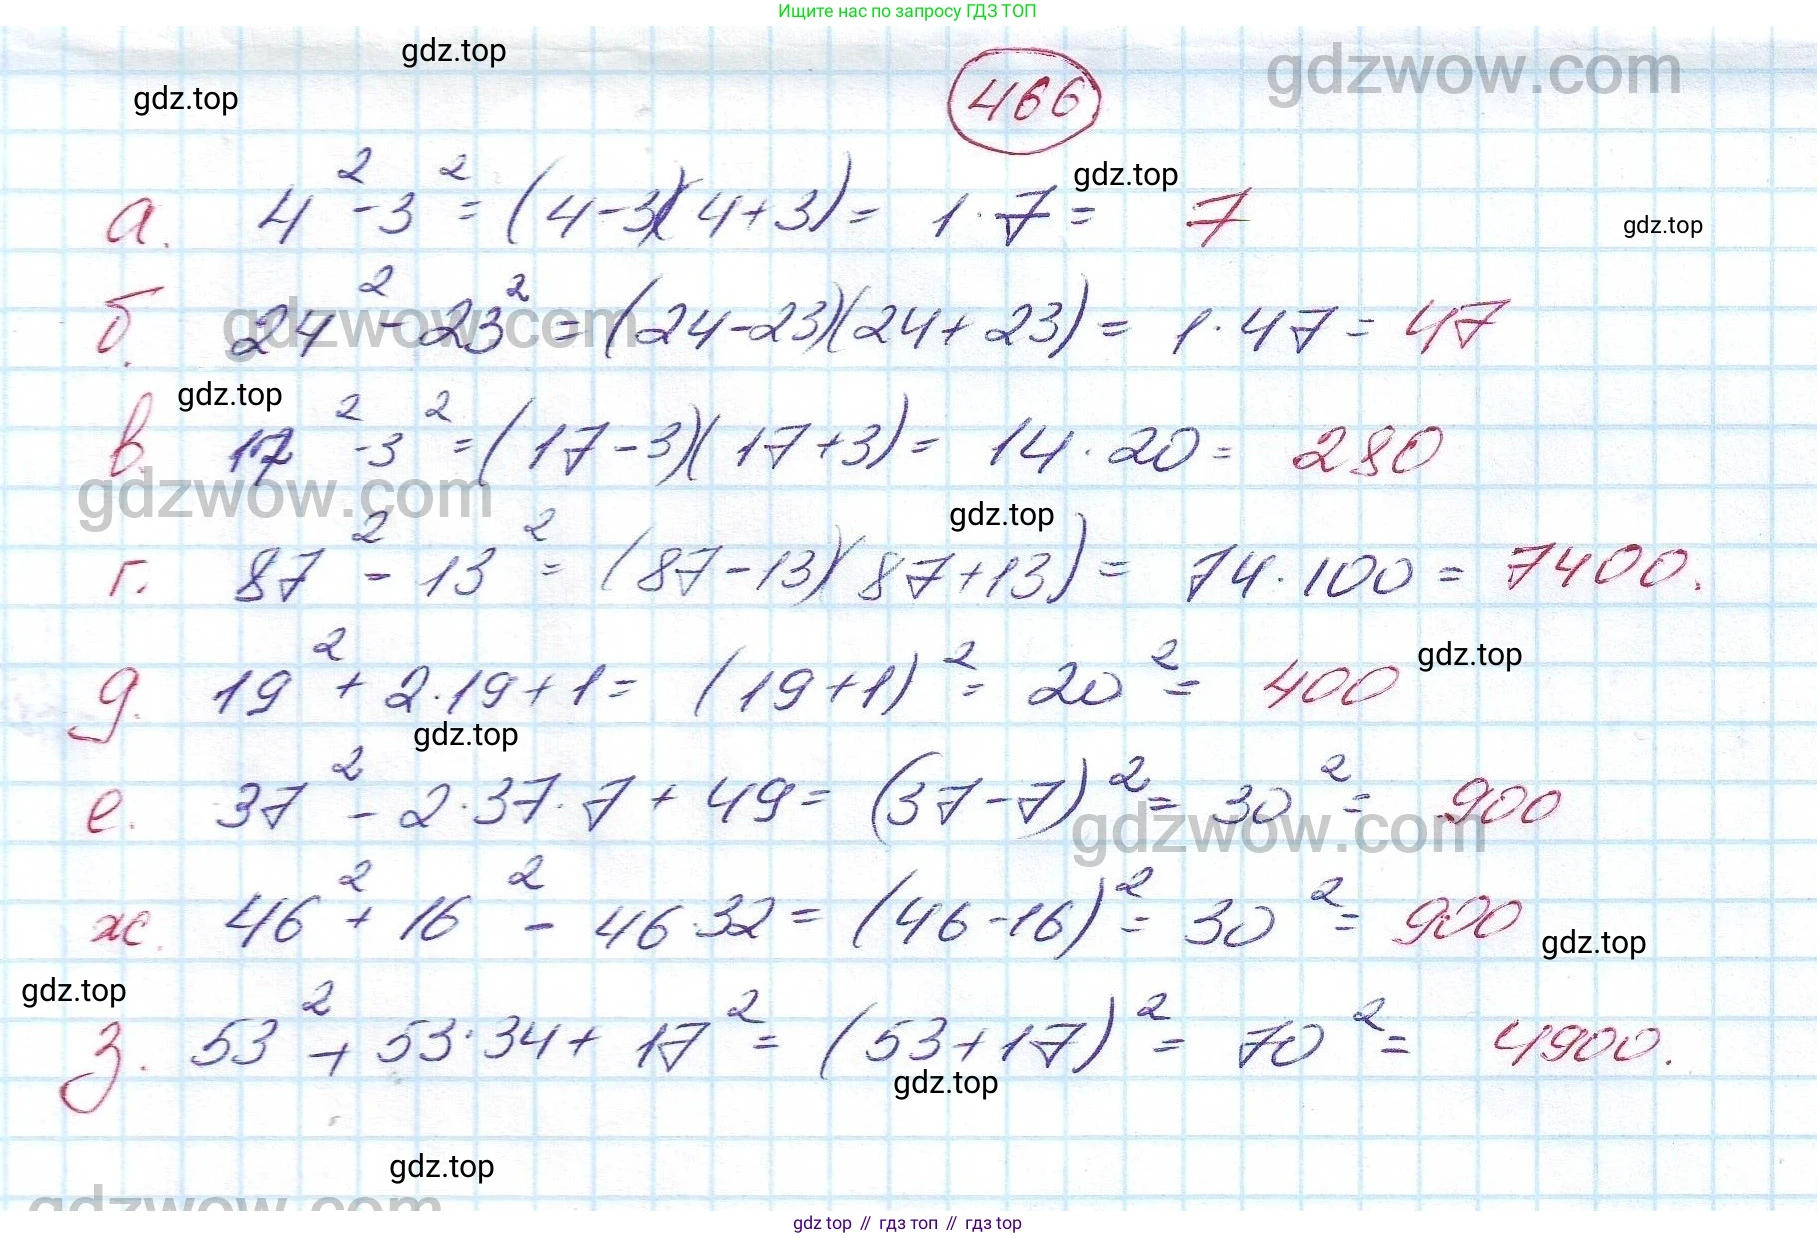 Ищите нас по запросу ГДЗ ТОП
gdz.top
gdzwow.com
gdz.top
466
gdz.top
а. 4² - 3² = (4-3)(4+3) = 1·7 = 7
gdz.top
gdzwow.com
б. 24² - 23² = (24-23)(24+23) = 1·47 = 47
gdz.top
в. 17² - 3² = (17-3)(17+3) = 14·20 = 280
gdzwow.com
gdz.top
г. 87² - 13² = (87-13)(87+13) = 74·100 = 7400.
gdz.top
д. 19² + 2·19+1 = (19+1)² = 20² = 400
gdz.top
е. 37² - 2·37·7 + 49 = (37-7)² = 30² = 900
gdzwow.com
ж. 46² + 16² - 46·32 = (46-16)² = 30² = 900
gdz.top
gdz.top
з. 53² + 53·34 + 17² = (53+17)² = 70² = 4900.
gdz.top
gdz.top
gdzwow.com
gdz top // гдз топ // gdz top